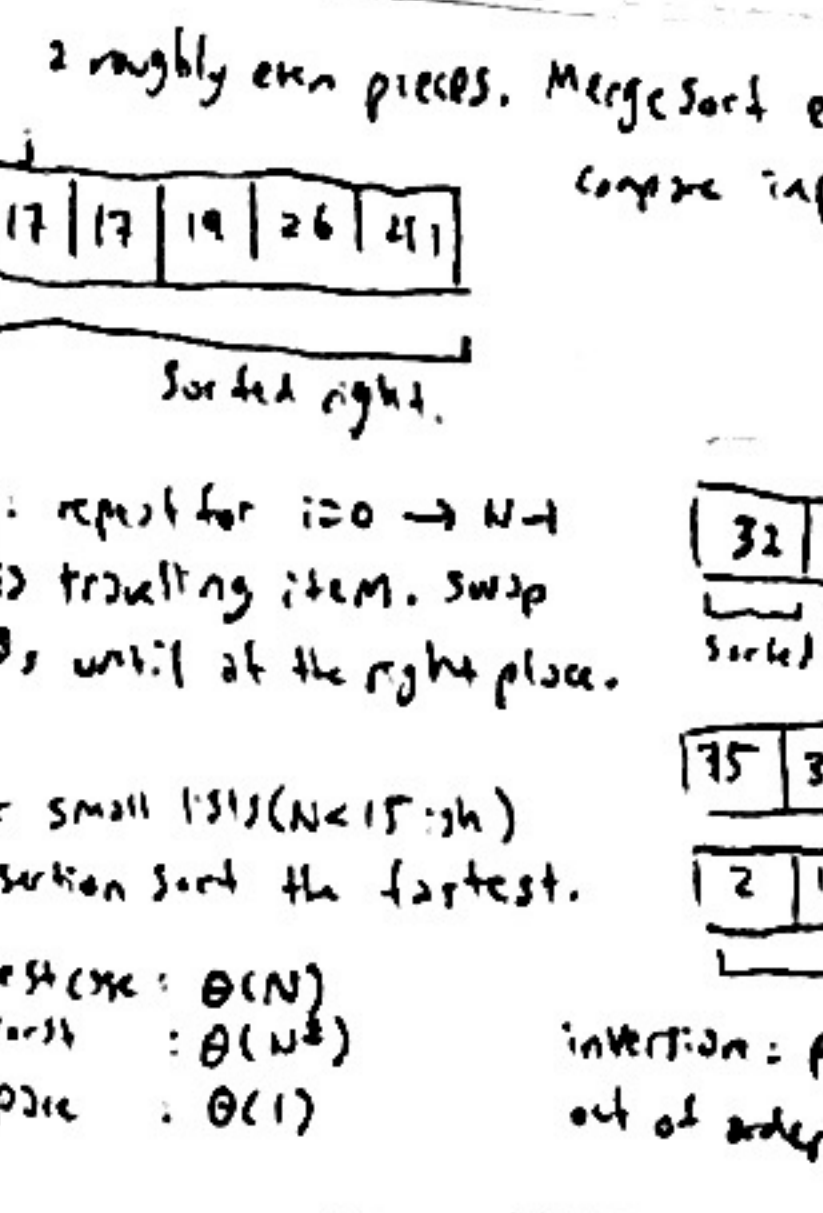 2 roughly even pieces. Merge Sort e
compare inp
j
17 | 17 | 19 | 26 | 41
Sorted right.
: repeat for i=0 → N-1
is travelling item. swap
until at the right place.
32
sorted
75 3
small lists (N<15 ish)
sertion sort the fastest.
2
est case : Θ(N)
orst : Θ(N²)
pace : Θ(1)
inversion : p
out of order